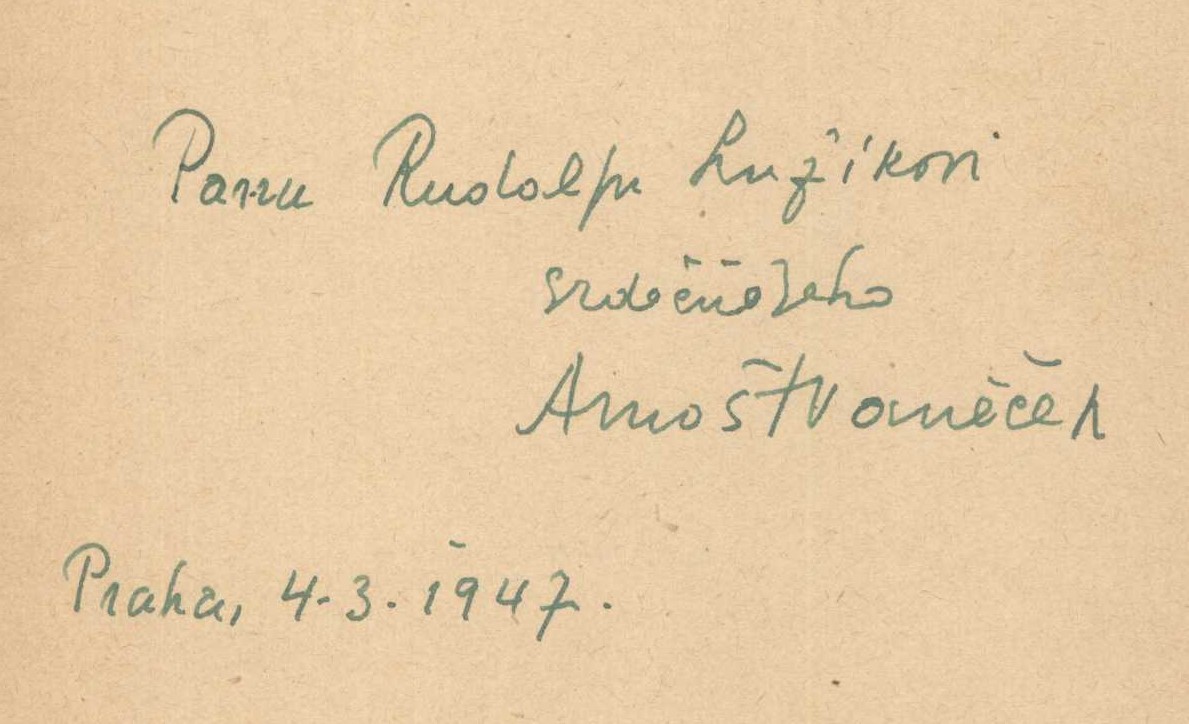 Panu Rudolfu Lužíkovi
srdečně Jeho
Arnošt Vaněček
Praha, 4.3.1947.